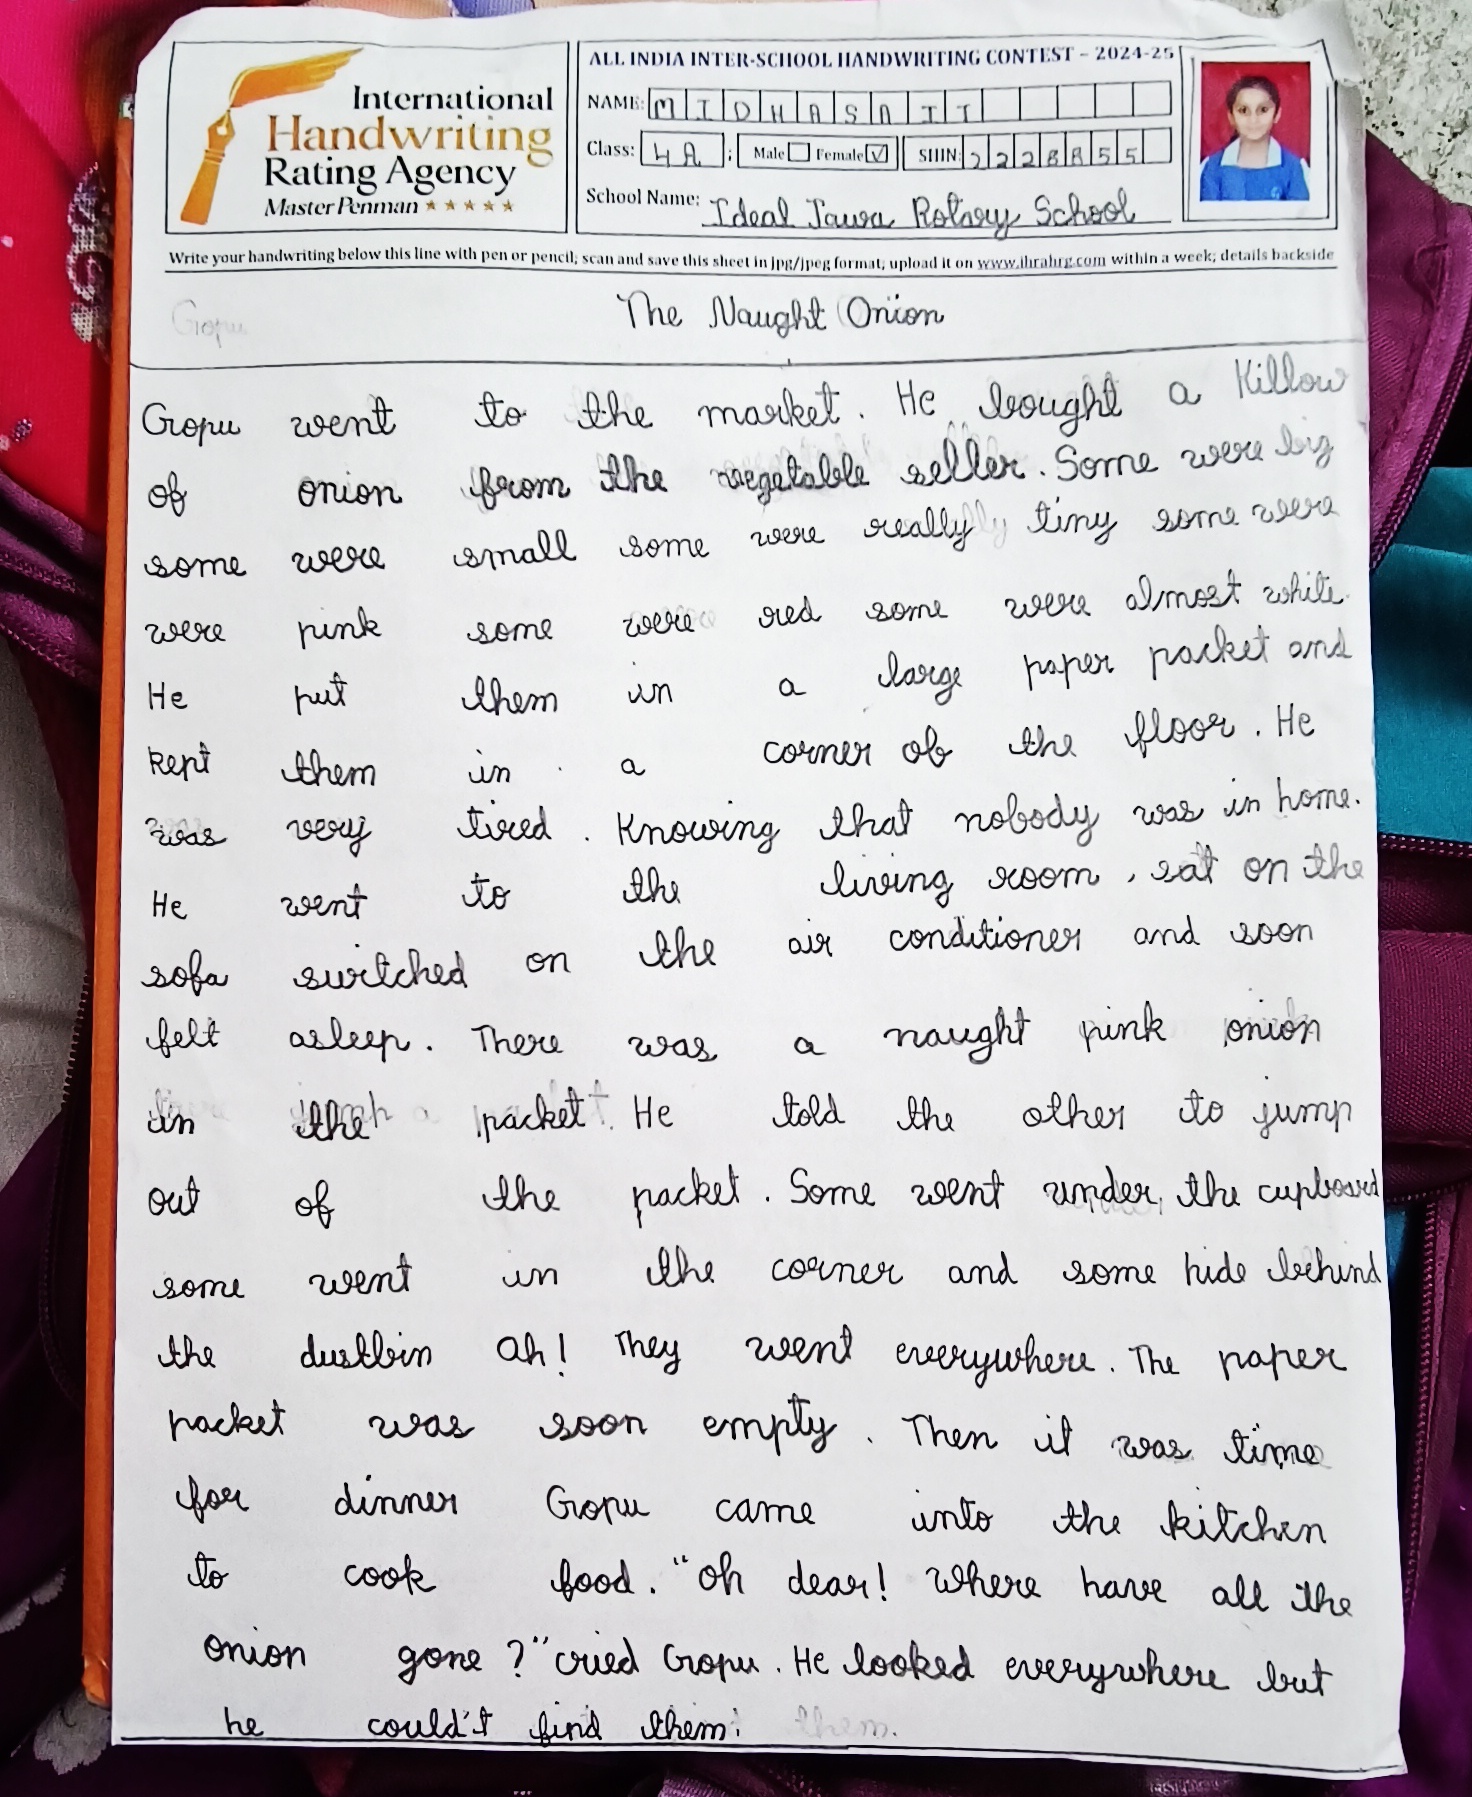 International
Handwriting
Rating Agency
Master Penman
ALL INDIA INTER-SCHOOL HANDWRITING CONTEST - 2024-25
NAME: MIDHASAII
Class: 4A ; Male Female SHIN: 22288855
School Name: Ideal Jawa Rotary School
Write your handwriting below this line with pen or pencil; scan and save this sheet in jpg/jpeg format; upload it on www.ihrahrg.com within a week; details backside
Gopu
The Naught Onion
Gopu went to the market. He bought a Killow
of onion from the vegetable seller. Some were big
some were small some were really tiny some were
were pink some were red some were almost white
He put them in a large paper packet and
kept them in a corner of the floor. He
was very tired. Knowing that nobody was in home.
He went to the living room, sat on the
sofa switched on the air conditioner and soon
felt asleep. There was a naught pink onion
in the packet. He told the other to jump
out of the packet. Some went under, the cupboard
some went in the corner and some hide behind
the dustbin ah! They went everywhere. The paper
packet was soon empty. Then it was time
for dinner Gopu came into the kitchen
to cook food. "Oh dear! Where have all the
onion gone?" cried Gopu. He looked everywhere but
he could't find them. them.